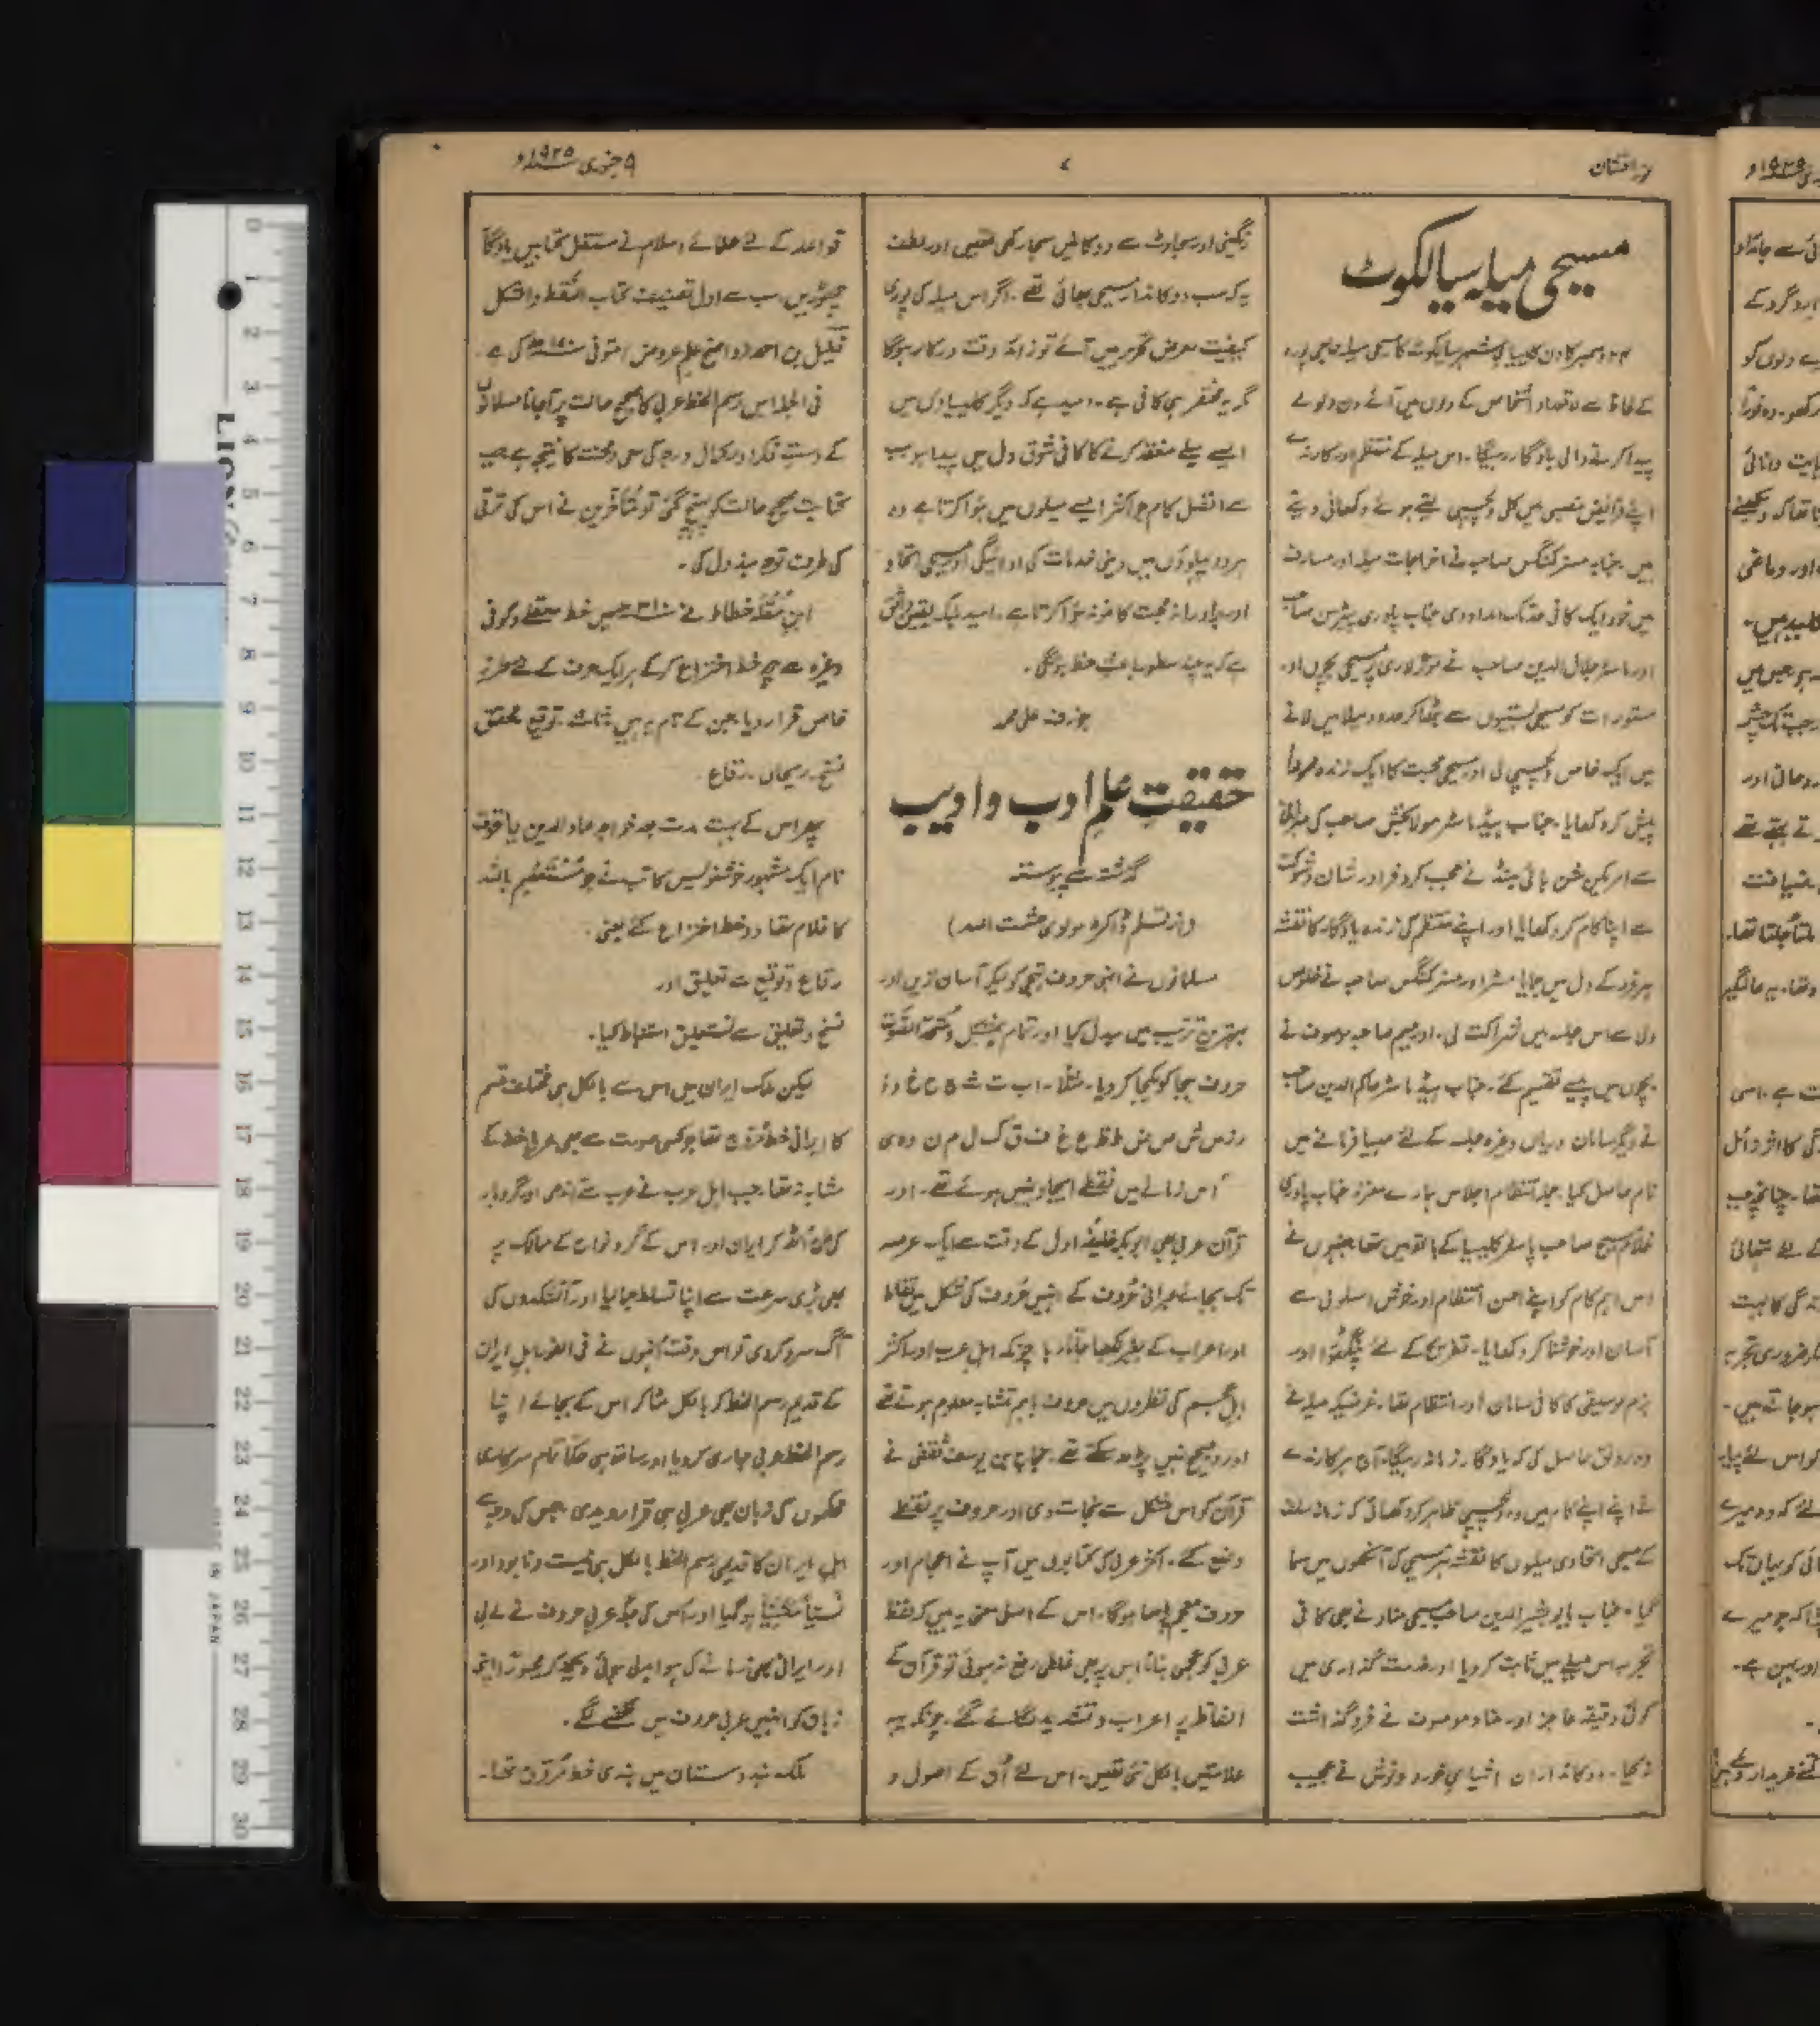 نور افشان
۹ جنوری ۱۹۲۵ء
مسیحی میلہ سیالکوٹ
کے لحاظ سے لاتعداد اشخاص کے دلوں میں آئے دن ولولے
پیدا کرنے والی یادگار رہیگا۔ اس میلہ کے منتظم اور کارندے
اپنے فرائیض منصبی میں کل دلچسپی لیتے ہوئے دکھائی دیتے
ہیں۔ جنابہ مسز کنگس صاحبہ نے اخراجات میلہ اور مصارف
میں خود ایک کافی حد تک امداد دی جناب پادری پیٹرسن صاحب
اور ماسٹر جلال الدین صاحب نے موٹر لاری پر مسیحی بچوں اور
مستورات کو مسیحی بستیوں سے بٹھا کر حدود میلا میں لانے
میں ایک خاص دلچسپی لی اور مسیحی محبت کا ایک زندہ
پیش کر دکھایا۔ جناب ہیڈ ماسٹر مولا بخش صاحب کی
سے امریکن مشن ہائی بینڈ نے عجب کروفر اور شان و شوکت
سے اپنا کام کر دکھایا اور اپنے منتظم کی زندہ یادگار کا نقشہ
ہر فرد کے دل میں جمایا مسٹر اور مسز کنگس صاحبہ نے خلوص
دلا سے اس جلسہ میں شراکت لی۔ اور میم صاحبہ موصوفہ نے
بچوں میں پیسے تقسیم کئے۔ جناب ہیڈ ماسٹر حاکم الدین صاحب
نے دیگر سامان دریاں وغیرہ جلسہ کے لئے مہیا فرمانے میں
نام حاصل کیا۔ جملہ انتظام اجلاس ہمارے معزز جناب پادری
غلام مسیح صاحب پاسٹر کلیسیا کے ہاتھ میں تھا جنہوں نے
اس اہم کام کو اپنے احسن انتظام اور خوش اسلوبی سے
آسان اور خوشنما کر دکھایا۔ تفریح کے لئے پنگھوڑا اور
بزم موسیقی کا کافی سامان اور انتظام تھا۔ غرضیکہ میلہ نے
وہ رونق حاصل کی کہ یادگار زمانہ رہیگا۔ ہر کارندے
نے اپنے اپنے کام میں وہ دلچسپی ظاہر کر دکھائی کہ زمانہ سلف
کے مسیحی اتحادی میلوں کا نقشہ ہر مسیحی کی آنکھوں میں سما
گیا۔ جناب بابو بشیر الدین صاحب مسیحی مناد نے بھی کافی
تجربہ اس میلے میں ثابت کر دیا اور خدمت گذاری میں
کوئی دقیقہ عاجز اور مناد موصوف نے فروگذاشت
نہ کیا۔ دوکانداران اشیائے خورد و نوش نے عجیب
رنگینی اور سجاوٹ سے دوکانیں سجا رکھی تھیں اور لطف
یہ کہ سب دوکاندار مسیحی بھائی تھے۔ اگر اس میلہ کی پوری
کیفیت معرض تحریر میں آئے تو زائد وقت درکار ہوگا
گر یہ مختصر ہی کافی ہے۔ امید ہے کہ دیگر کلیسیاؤں میں
ایسے میلے منعقد کرنے کا کافی شوق دل میں پیدا ہو سب
سے افضل کام جو اکثر ایسے میلوں میں ہوا کرتا ہے وہ
ہر دو پہلوؤں میں دینی خدمات کی ادائیگی اور مسیحی اتحاد
اور برادرانہ محبت کا نمونہ ہوا کرتا ہے۔ امید بلکہ یقین واثق
ہے کہ یہ چند سطور باعث حظ ہونگی۔
حقیقتِ علمِ ادب و ادیب
گذشتہ سے پیوستہ
(از قلم ڈاکٹر مولوی حشمت اللہ)
مسلمانوں نے انہی حروف تہجی کو لیکر آسان ترین اور
بہترین ترتیب میں مبدل کیا اور تمام ہمشکل و متحدۃ الصوت
حروف ہجا کو یکجا کر دیا۔ مثلاً۔ ا ب ت ث ج ح خ د ذ
ر ز س ش ص ض ط ظ ع غ ف ق ک ل م ن و ہ ی
اُس زمانے میں نقطے ایجاد نہیں ہوئے تھے۔ اور
قرآن عربی بھی ابوبکر خلیفہ اول کے وقت سے ایک عرصہ
تک بجائے عبرانی حُروف کے انہیں حُروف کی شکل میں نقاط
اور اعراب کے بغیر لکھا جاتا رہا چونکہ اہل عرب اور اکثر
اہل عجم کی نظروں میں حروف باہم متشابہ معلوم ہوتے تھے
اور وہ صحیح نہیں پڑھ سکتے تھے۔ حجاج بن یوسف ثقفی نے
قرآن کو اس مشکل سے نجات دی اور حروف پر نقطے
وضع کئے۔ اکثر عربی کی کتابوں میں آپ نے اعجام اور
حروف معجمہ پڑھا ہوگا۔ اس کے اصل معنی یہ ہیں کہ لفظ
عربی کو عجمی بنانا اس پر بھی غلطی رفع نہ ہوئی تو قرآن کے
الفاظ پر اعراب و تشدید لگائے گئے۔ چونکہ یہ
علامتیں بالکل نئی تھیں۔ اس لئے اُن کے اصول و
قواعد کے لئے علمائے اسلام نے مستقل کتابیں یادگار
چھوڑیں۔ سب سے اول تصنیف کتاب النقط والشکل
خلیل بن احمد (واضح علم عروض) متوفی کی ہے۔
فی الجملہ اس رسم الخط عربی کا صحیح حالت پر آجانا مسلمانوں
کے دست فکر اور کمال درجہ کی سعی و محنت کا نتیجہ ہے جب
کتابت صحیح حالت کو پہنچ گئی تو متاخرین نے اس کی ترقی
کی طرف توجہ مبذول کی۔
ابن مُقلَہ خطاط نے ۳۱۰ھ میں خط معقلے و کوفی
وغیرہ سے چھ خط اختراع کر کے ہر ایک حرف کے لئے طرز
خاص قرار دیا جن کے نام یہ ہیں۔ ثلث۔ توقیع محقق
نسخ۔ ریحان۔ رقاع۔
پھر اس کے بہت مدت بعد خواجہ عماد الدین یاقوت
نام ایک مشہور خوشنویس کاتب نے جو مُسْتَعْصِم باللہ
کا غلام تھا دو خط اختراع کئے یعنی۔
رقاع و توقیع سے تعلیق اور
نسخ و تعلیق سے نستعلیق استنباط کیا۔
لیکن ملک ایران میں اس سے بالکل ہی مختلف قسم
کا ایرانی خط مُروج تھا جو کسی صورت سے بھی عربی خط کے
مشابہ نہ تھا۔ جب اہل عرب نے عرب سے آندھی اور گردباد
کی مثل اُٹھ کر ایران اور اس کے گرد نواح کے ممالک پر
بھی بڑی سرعت سے اپنا تسلط جمالیا اور آتشکدوں کی
آگ سرد کردی تو اس وقت اُنہوں نے فی الفور اہل ایران
کے قدیم رسم الخط کو بالکل مٹا کر اس کے بجائے اپنا
رسم الخط عربی جاری کردیا اور ساتھ ہی حکماً تمام سرکاری
محکموں کی زبان بھی عربی ہی قرار دیدی جس کی وجہ سے
اہل ایران کا قدیمی رسم الخط بالکل ہی نیست و نابود اور
نَسیاً مَنسِیّاً ہو گیا اور اُس کی جگہ عربی حروف نے لے لی
اور ایرانی بھی زمانے کی ہوا بدلی ہوئی دیکھ کر مجبوراً اپنی
زبان کو انہیں عربی حروف میں لکھنے لگے۔
ملک ہندوستان میں ہندی خط مُروّج تھا۔